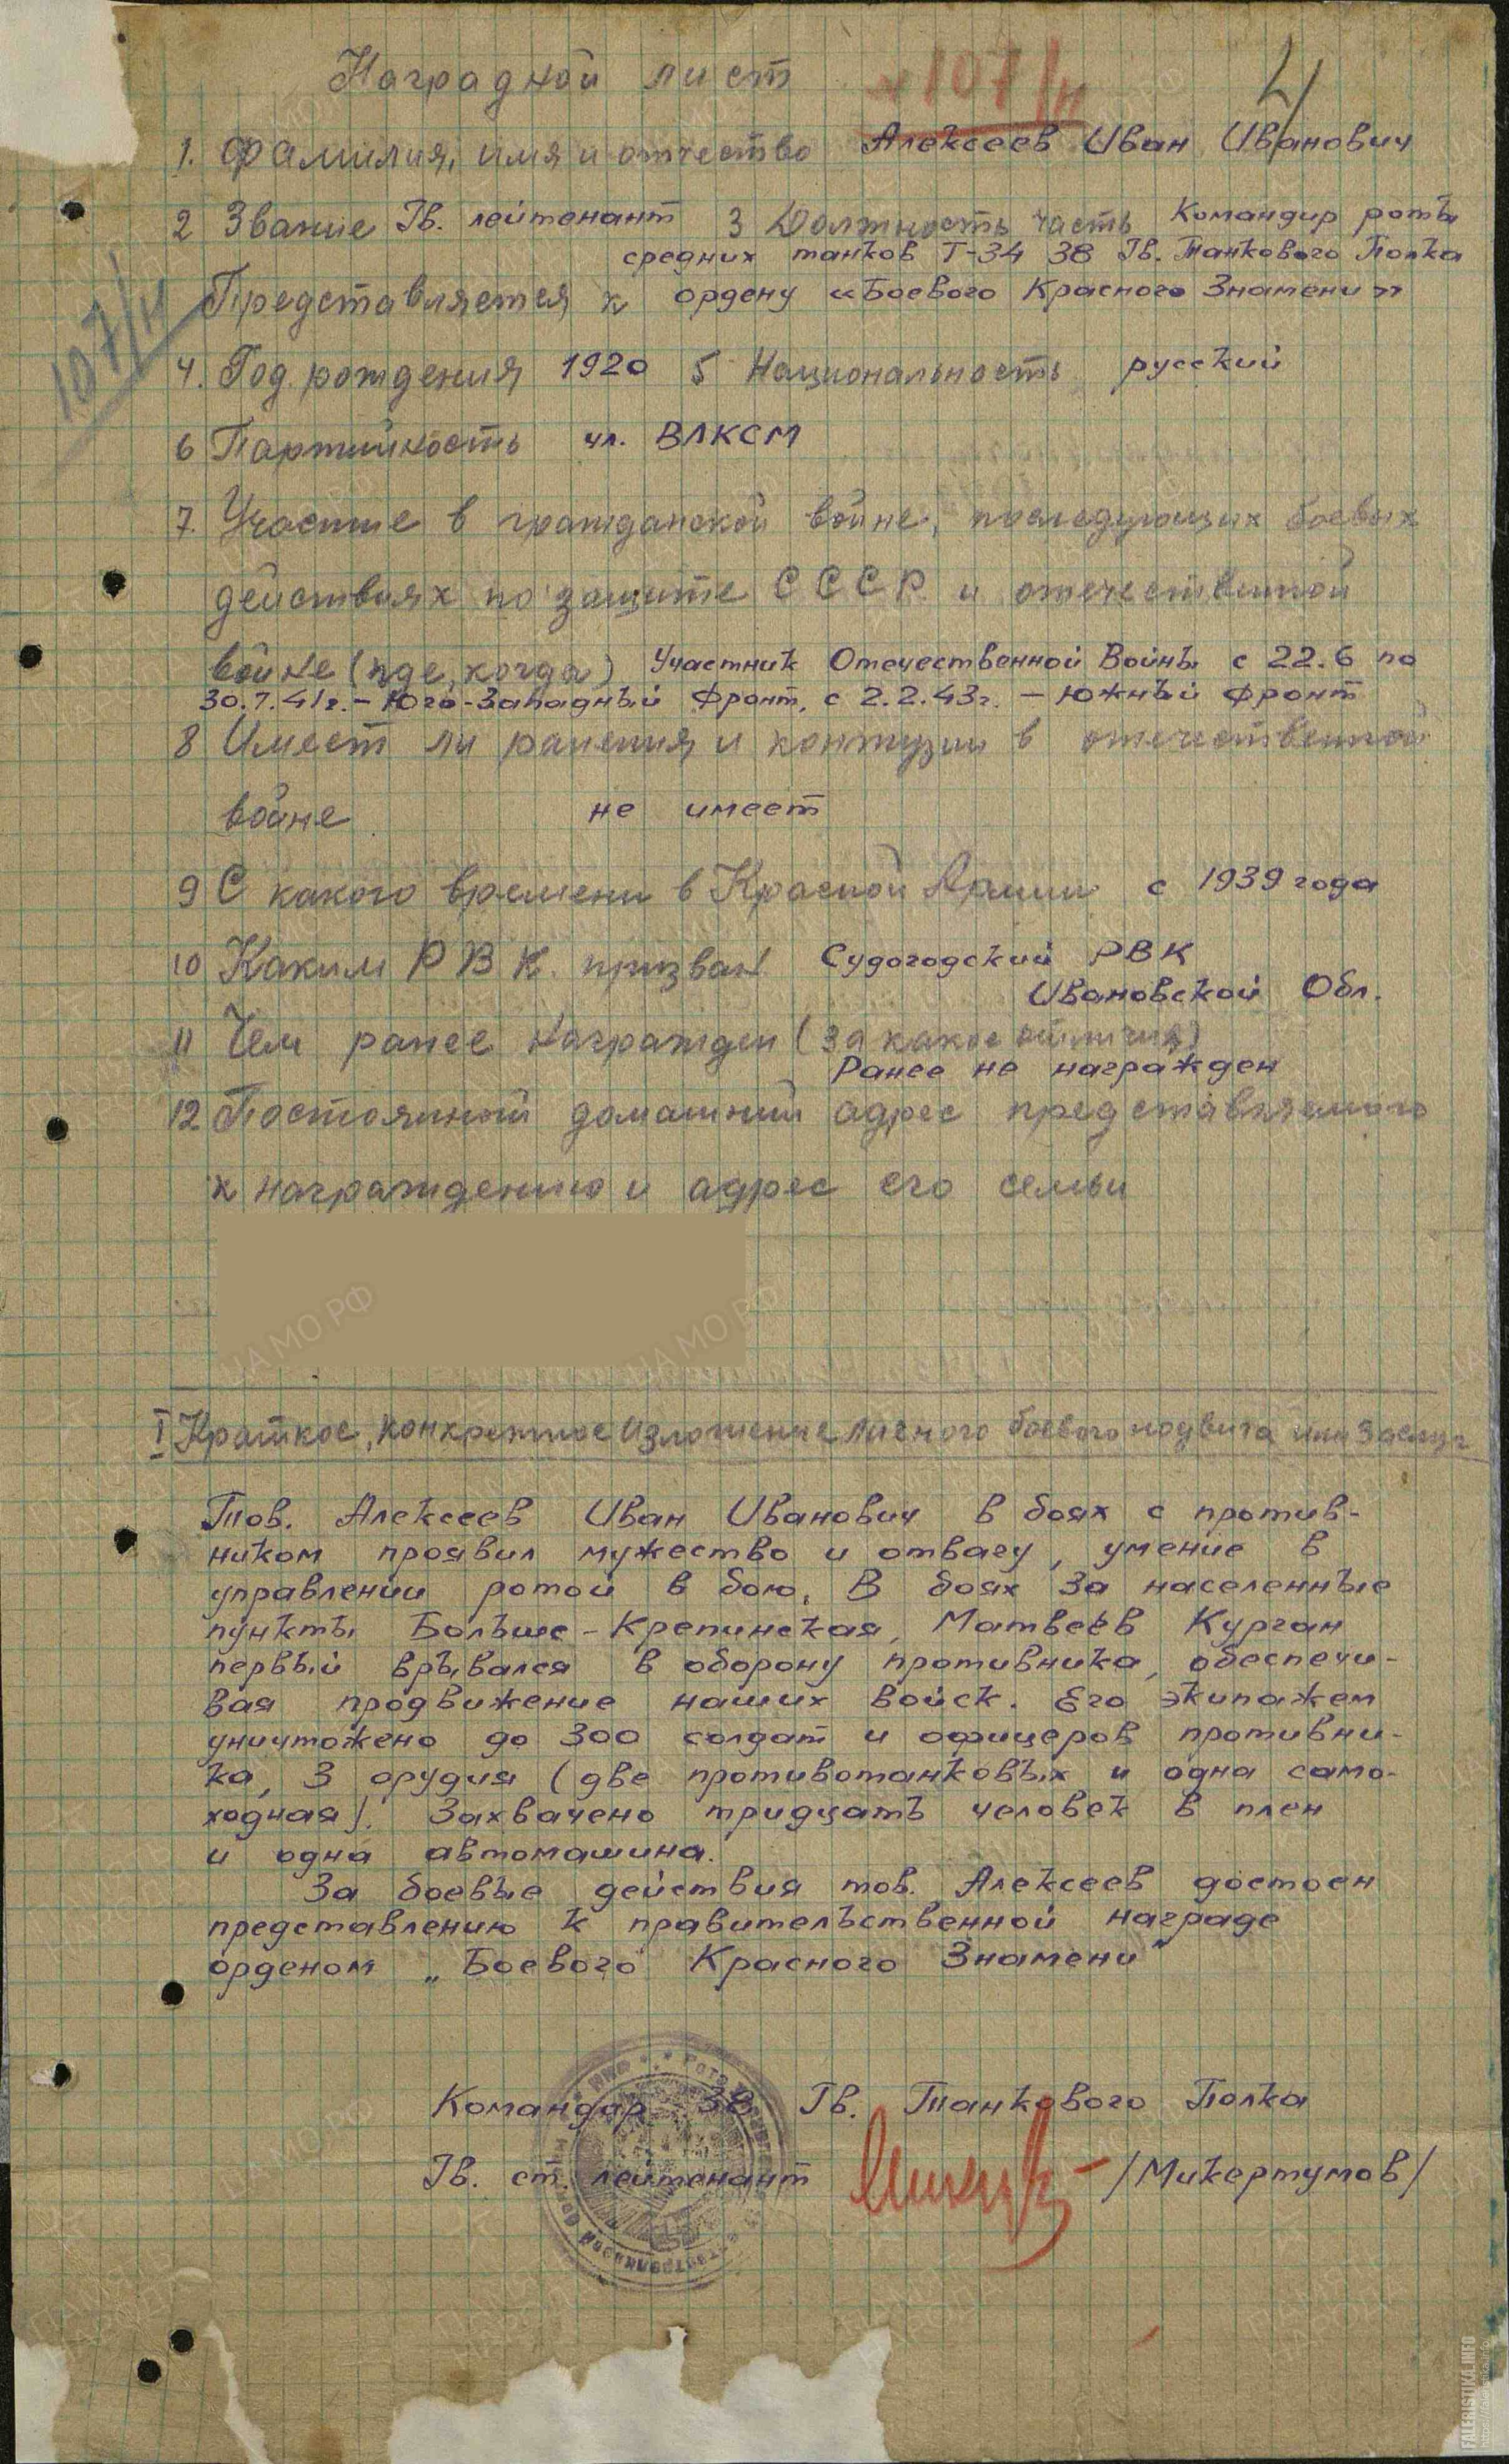 Наградной лист
№107/н
4
1. Фамилия, имя и отчество Алексеев Иван Иванович
2 Звание Гв. лейтенант 3 Должность часть Командир роты
средних танков Т-34 38 Гв. Танкового Полка
Представляется к ордену «Боевого Красного Знамени»
107/н
4. Год рождения 1920 5 Национальность русский
6 Партийность чл. ВЛКСМ
7. Участие в гражданской войне, последующих боевых
действиях по защите СССР и отечественной
войне (где, когда) Участник Отечественной Войны с 22.6 по
30.7.41г. – Юго-Западный Фронт, с 2.2.43г. – Южный Фронт
8 Имеет ли ранения и контузии в отечественной
войне не имеет
9 С какого времени в Красной Армии с 1939 года
10 Каким РВК призван Судогодский РВК
Ивановской Обл.
11 Чем ранее награжден (за какое отличия)
Ранее не награжден
12 Постоянный домашний адрес представляемого
к награждению и адрес его семьи
I Краткое, конкретное изложение личного боевого подвига или заслуг
Тов. Алексеев Иван Иванович в боях с против-
ником проявил мужество и отвагу, умение в
управлении ротой в бою. В боях за населенные
пункты Больше-Крепинская, Матвеев Курган
первый врывался в оборону противника, обеспечи-
вая продвижение наших войск. Его экипажем
уничтожено до 300 солдат и офицеров противни-
ка, 3 орудия (две противотанковых и одна само-
ходная). Захвачено тридцать человек в плен
и одна автомашина.
За боевые действия тов. Алексеев достоен
представлению к правительственной награде
орденом „Боевого Красного Знамени"
Командир 38 Гв. Танкового Полка
Гв. ст. лейтенант /Микертумов/
ЦА МО РФ
FALERISTIKA.INFO